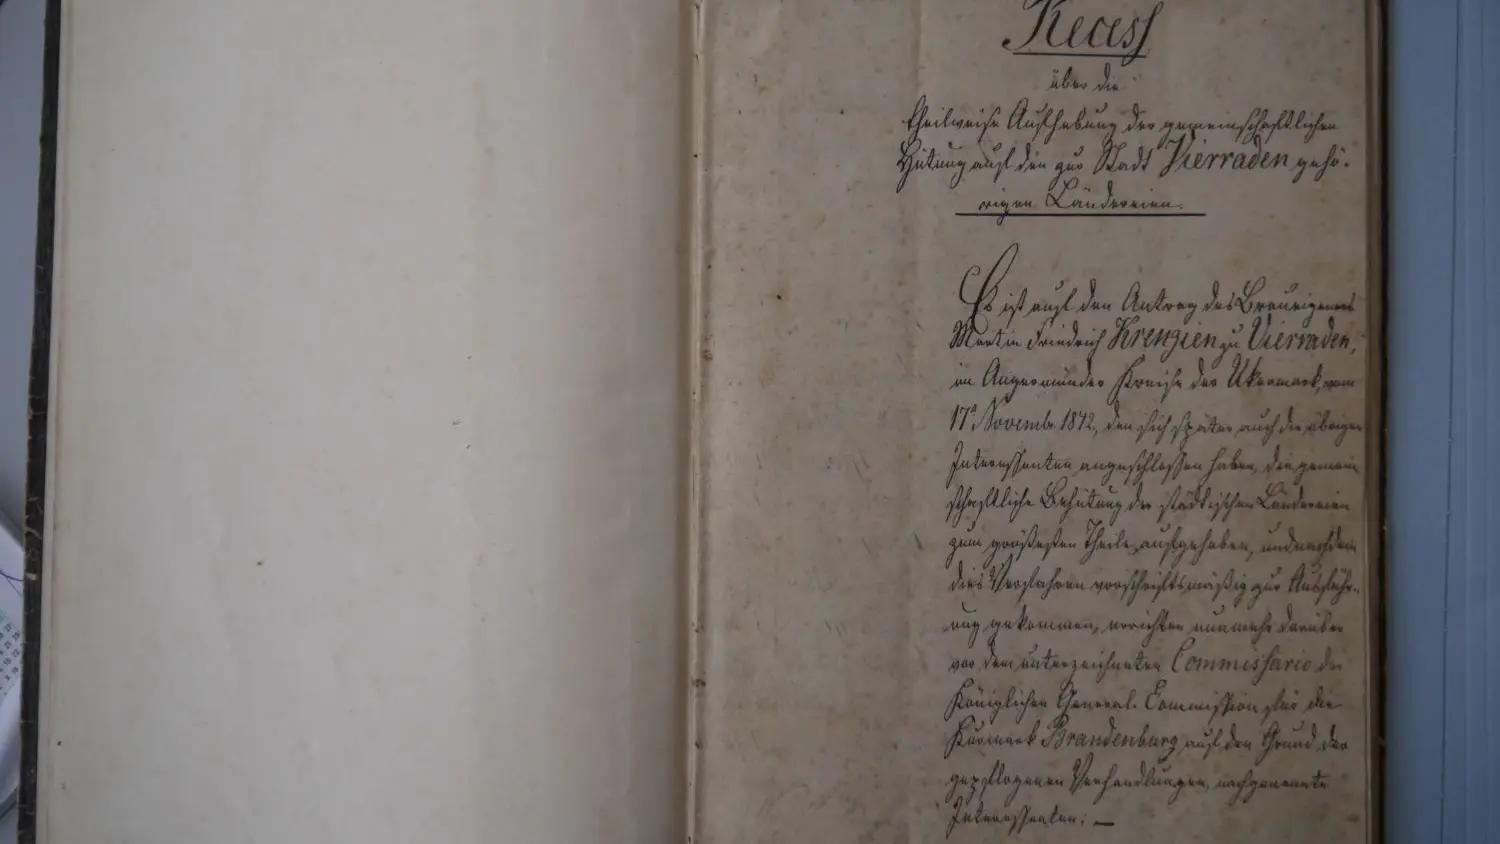 Recess
über die
theilweise Aufhebung der gemeinschaftlichen
Hütung auf den zur Stadt Vierraden gehö-
rigen Ländereien.
Es ist auf den Antrag des Braueigners
Martin Friedrich Krengien zu Vierraden,
im Angermünder Kreise der Ukermark, vom
17t Novembr 1842, dem sich später auch die übrigen
Interessenten angeschlossen haben, die gemein
schaftliche Behütung der städtischen Ländereien
zum größesten Theile aufgehoben, und nachdem
dies Verfahren vorschriftsmäßig zur Ausfüh-
rung gekommen, errichten nunmehr darüber
vor dem unterzeichneten Commissario der
Königlichen General-Commission für die
Kurmark Brandenburg auf den Grund der
gepflogenen Verhandlungen, nachgenannte
Interessenten: —